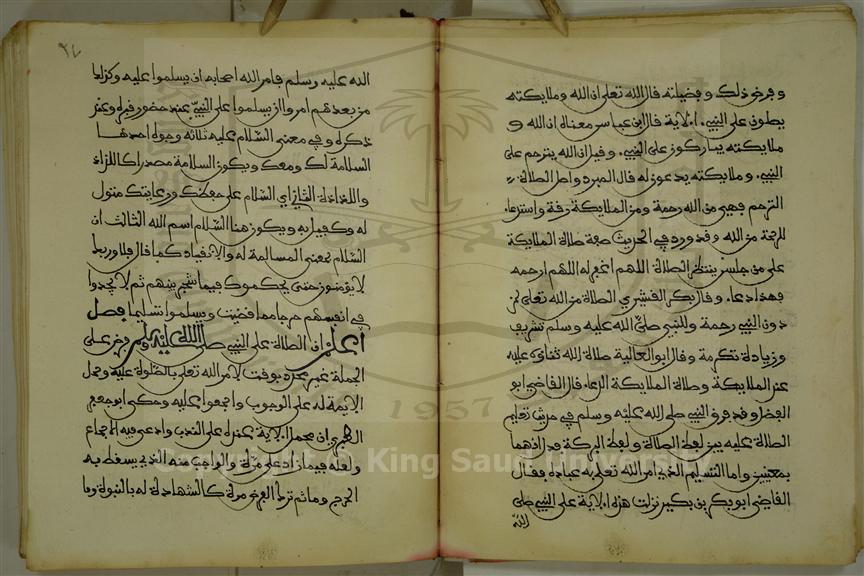 وفرض ذلك وفضيلته قال الله تعلى ان الله وملايكته
يصلون على النبيء الاية قال ابن عباس معناه ان الله و
ملايكته يباركون على النبيء وقيل ان الله يترحم على
النبيء وملايكته يدعون له قال المبرد واصل الصلاة
الترحم فهي من الله رحمة ومن الملايكة رقة واستدعاء
للرحمة من الله وقد ورد في الحديث صفة صلاة الملايكة
على من جلس ينتظر الصلاة اللهم اغفر له اللهم ارحمه
فهذا دعاء وقال بكر القشيري الصلاة من الله تعلى لمن
دون النبيء رحمة وللنبي صلى الله عليه وسلم تشريف
وزيادة تكرمة وقال ابو العالية صلاة الله ثناؤه عليه
عند الملايكة وصلاة الملايكة الدعاء قال القاضي ابو
الفضل وقد فرق النبي صلى الله عليه وسلم في حديث تعليم
الصلاة عليه بين لفظ الصلاة ولفظ البركة فدل انهما
بمعنيين واما التسليم الذي امر الله تعلى به عباده فقال
القاضي ابو بكر بن بكير نزلت هذه الاية على النبي صلى
الله
٢٤
الله عليه وسلم فامر الله اصحابه ان يسلموا عليه وكذلك
من بعدهم امروا ان يسلموا على النبيء عند حضور قبره وعند
ذكره وفي معنى السلام عليه ثلاثة وجوه احدها
السلامة لك ومعك ويكون السلامة مصدرا كاللذاذ
واللذاذة الثاني اي السلام على حفظك ورعايتك متول
له وكفيل به ويكون هنا السلام اسم الله الثالث ان
السلام بمعنى المسالمة له والانقياد كما قال فلا وربك
لا يؤمنون حتى يحكموك فيما شجر بينهم ثم لا يجدوا
في انفسهم حرجا مما قضيت ويسلموا تسليما فصل
اعلم ان الصلاة على النبي صلى الله عليه وسلم فرض على
الجملة غير محدد بوقت لامر الله تعلى بالصلوة عليه وحمل
الايمة له على الوجوب واجمعوا عليه وحكى ابو جعفر
الطبري ان محمل الاية عنده على الندب وادعى فيه الاجماع
ولعله فيما زاد على مرة والواجب منه الذي يسقط به
الحرج وماثم ترك الفرض مرة كالشهادة له بالنبوة وما
Copyright © King Saud University
1957